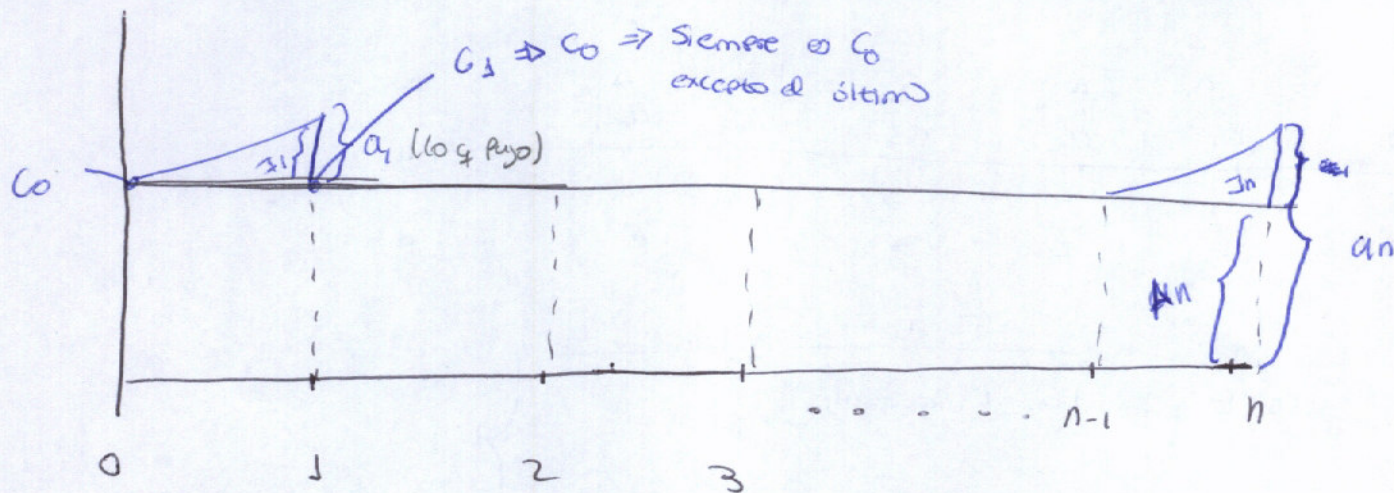 C1 ⇒ C0 ⇒ Siempre es C0
excepto el último
C0
I1
a1 (lo q pago)
In
an
Mn
0
1
2
3
. . . . . .
n-1
n